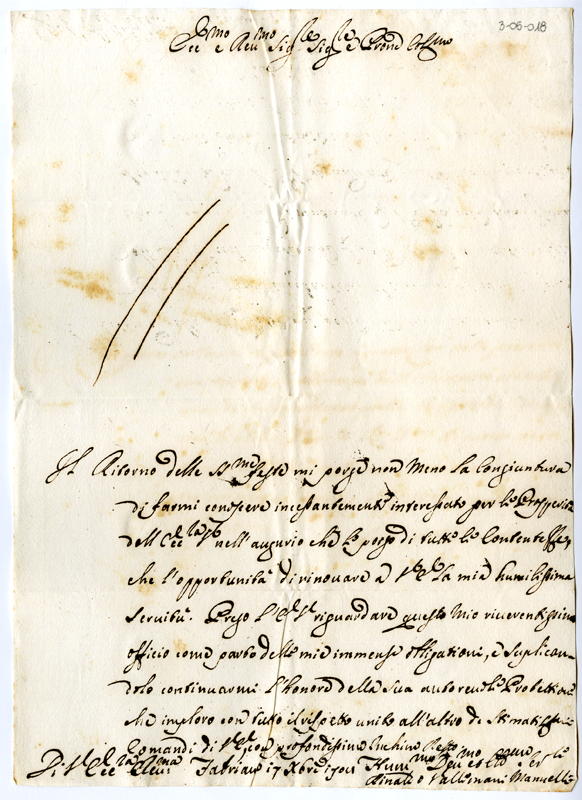 3-06-018
Ecc.mo e Reu.mo Sig.re Sig.re e Prone Col.mo
Il Ritorno delle SS.me feste mi porge non meno la Congiuntura
di farmi conoscere incessantement.e interessato per le Prosperità
dell'Ecc.za V.a nell'augurio che le porgo di tutte le Contentesse,
che l'opportunità di rinouare a V.E. la mia humilissima
seruitù. Prego l'E.V. riguardare questo mio riuerentissimo
officio come parto delle mie immense obligationi, e suplican=
dolo continuarmi l'honore della Sua autoreuole Protettione
che imploro con tutto il rispetto unito all'altro de Stimatissimi
Comandi di V.E. con profondissimo Inchino Resto
Di V. Ecc.za Reu.ma Fabriano 17 Xbre 1701 Hum.mo Deu.mo et
Rinaldo Vallemani